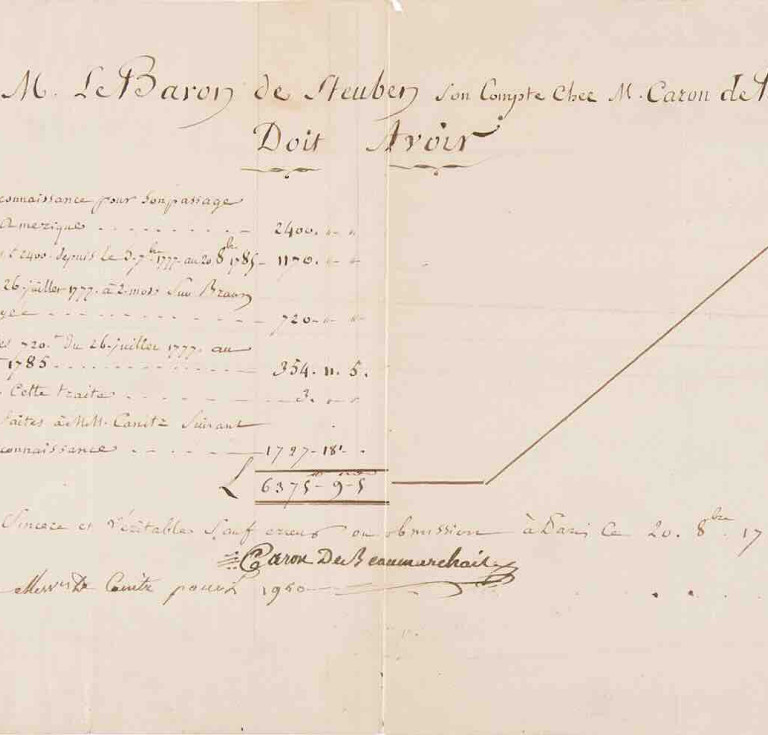 M. Le Baron de Steuben Son Compte Chez M. Caron de
Doit Avoir
connaissance pour Son passage
Amerique . . . . . . . . . . 2400. " "
2400. depuis Le 3. 7.bre 1777. au 20 8bre 1785 - 1170. " "
26. juillet 1777. à 2. mois Sur
- - - - - - - - - - 720. " "
es 720.# du 26. juillet 1777. au
1785 . . . . . . . . . . 354. 11. 5.
Cette traite . . . . . . . . 3. " "
faites à MM. Canitz Suivant
connaissance . . . . . . 1727 - 18. .
L 6375 - 9 - 5
Sincere et Véritable Sauf erreur ou obmission à Paris Ce 20. 8bre 17
Caron De Beaumarchais
pour L 1950